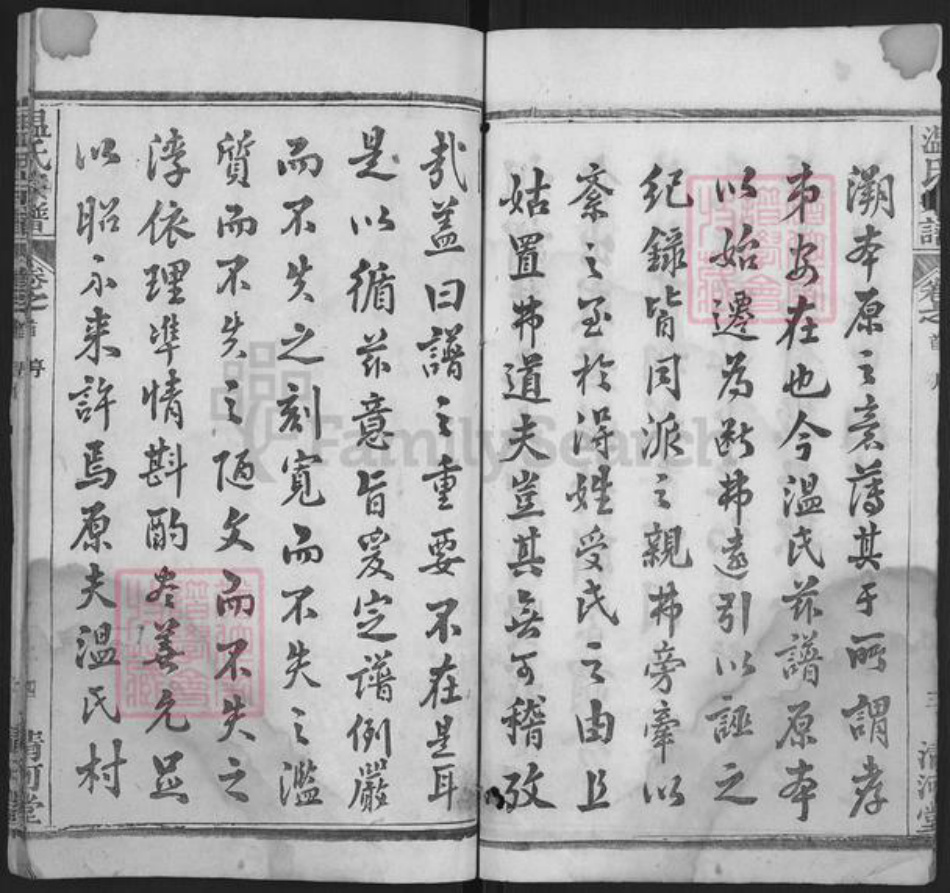 溯本原之意薄其于所謂孝
弟安在也今溫氏兹譜原本
以始遷為断弗遠引以誣之
紀錄皆同派之親弗旁牽以
紊之至於得姓受氏之由且
姑置弗道夫豈其無可稽攷
哉蓋曰譜之重要不在是耳
是以循兹意旨爰定譜例嚴
而不失之刻寬而不失之濫
質而不失之陋文而不失之
浮依理準情斟酌盡善允足
以昭示来許焉原夫溫氏村
溫氏宗譜
卷之首
序
三
四
清河堂
FamilySearch